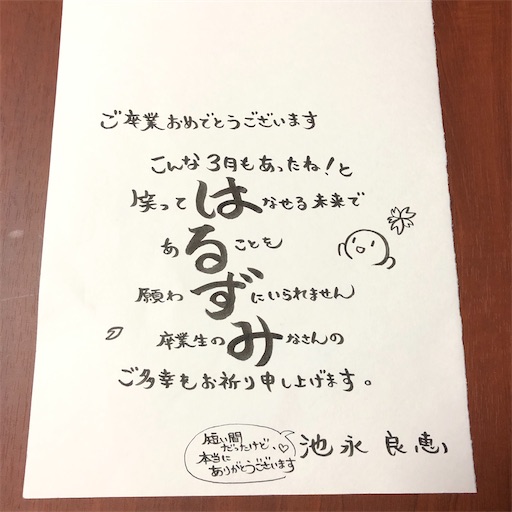 ご卒業おめでとうございます
こんな3月もあったね!と
笑ってはなせる未来で
あることを
願わずにいられません
卒業生のみなさんの
ご多幸をお祈り申し上げます。
短い間
だったけど、
本当に
ありがとうございます
池永良恵